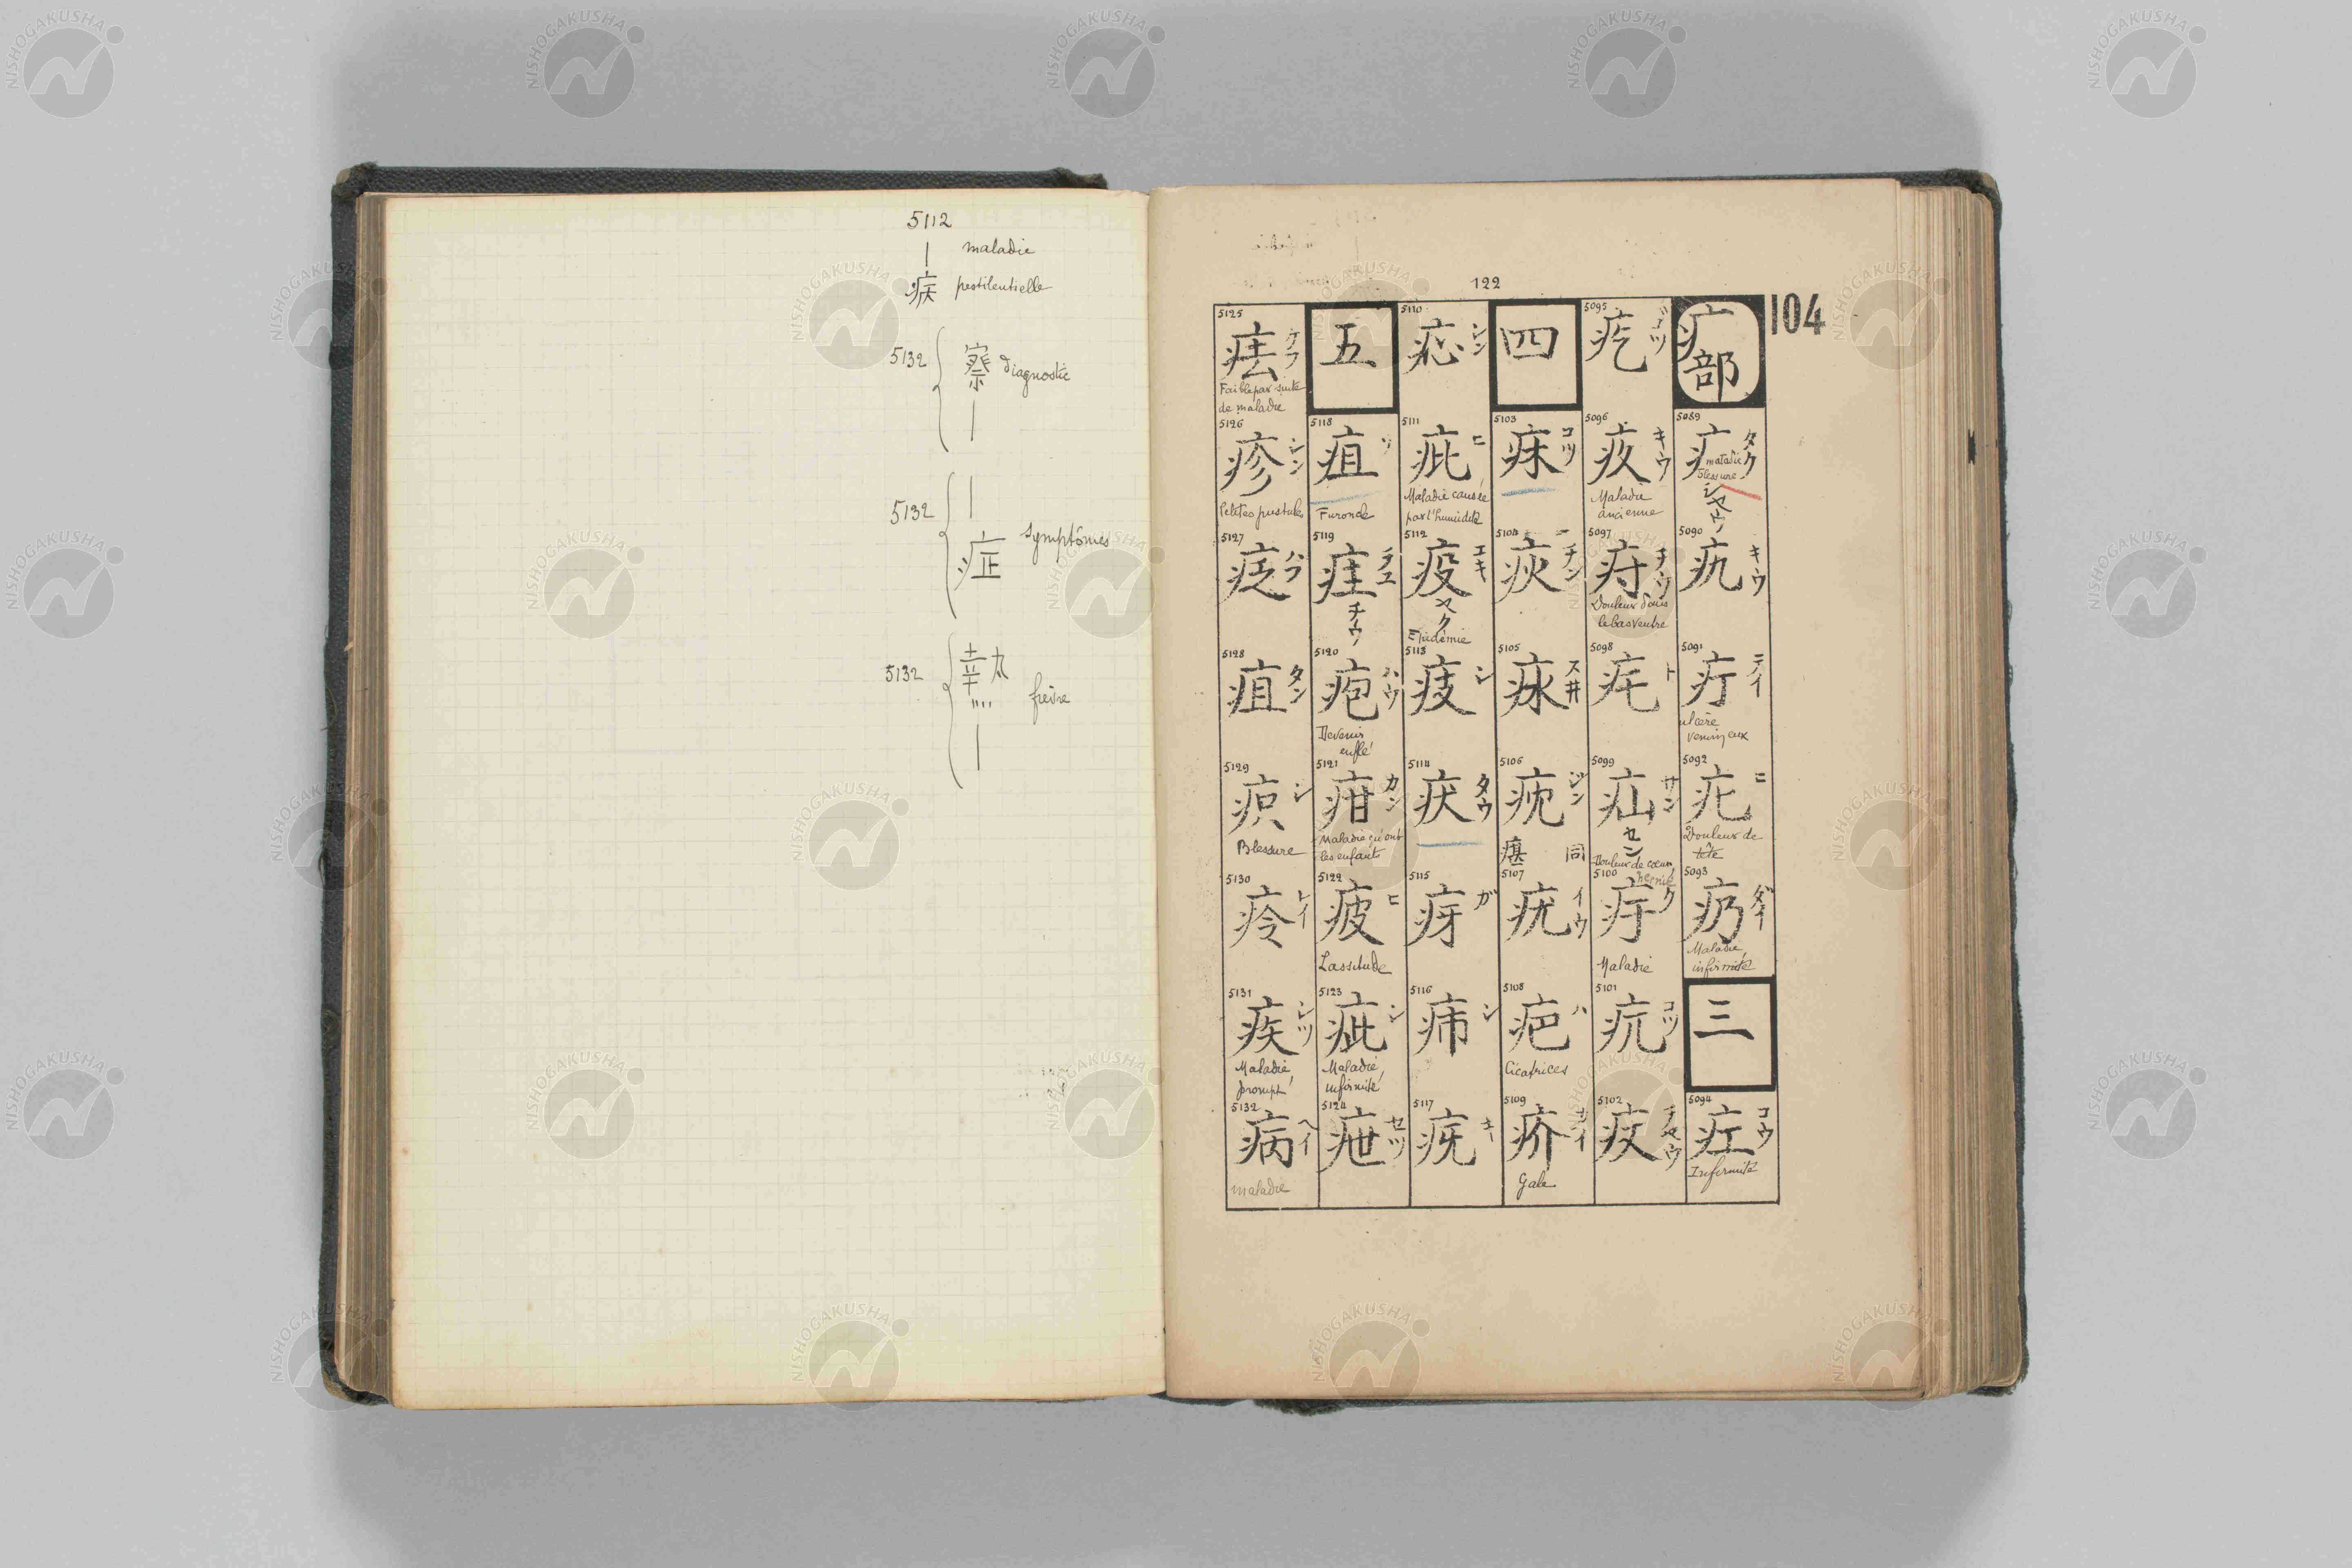 5112
| maladie
疾 pestilentielle
5132 察 diagnostic
|
5132 |
症 symptômes
5132 熱 fièvre
|
122
104
疒部
5089 疒 タク
maladie
blessure
シヤウ
5090 疚 キウ
5091 疔 テイ
ulcère
venimeux
5092 疕 ヒ
Douleur de
tête
5093 疓 ダイ
Maladie
infirmité
三
5094 疘 コウ
Infirmité
5095 疙 ギツ
5096 疚 キウ
Maladie
ancienne
5097 疛 チウ
Douleur dans
le bas ventre
5098 疜 ト
5099 疝 サン
セン
Douleur de cœur,
hernie
5100 疞 ク
Maladie
5101 疘 コツ
5102 疚 チヤウ
四
5103 コツ
5104 疢 チン
5105 ス井
5106 疣 ジン
㽸 同
5107 疣 イウ
5108 疤 ハ
Cicatrices
5109 疥 カイ
Gale
5110 シン
5111 疪 ヒ
Maladie causée
par l'humidité
5112 疫 エキ
ヤク
Epidémie
5113 疲 シ
5114 タウ
5115 疨 ガ
5116 シ
5117 キ
五
5118 疽 ソ
Furoncle
5119 疰 チユ
チウ
5120 疱 ハウ
Devenir
enflé
5121 疳 カン
Maladie qu'ont
les enfants
5122 疲 ヒ
Lassitude
5123 疵 シ
Maladie,
infirmité
5124 疶 セツ
5125 㾀 ケフ
Faible par suite
de maladie
5126 疹 シン
Petites pustules
5127 疺 ハフ
5128 疸 タン
5129 疻 シ
Blessure
5130 㾉 レイ
5131 疾 シツ
Maladie,
prompt
5132 病 ヘイ
maladie